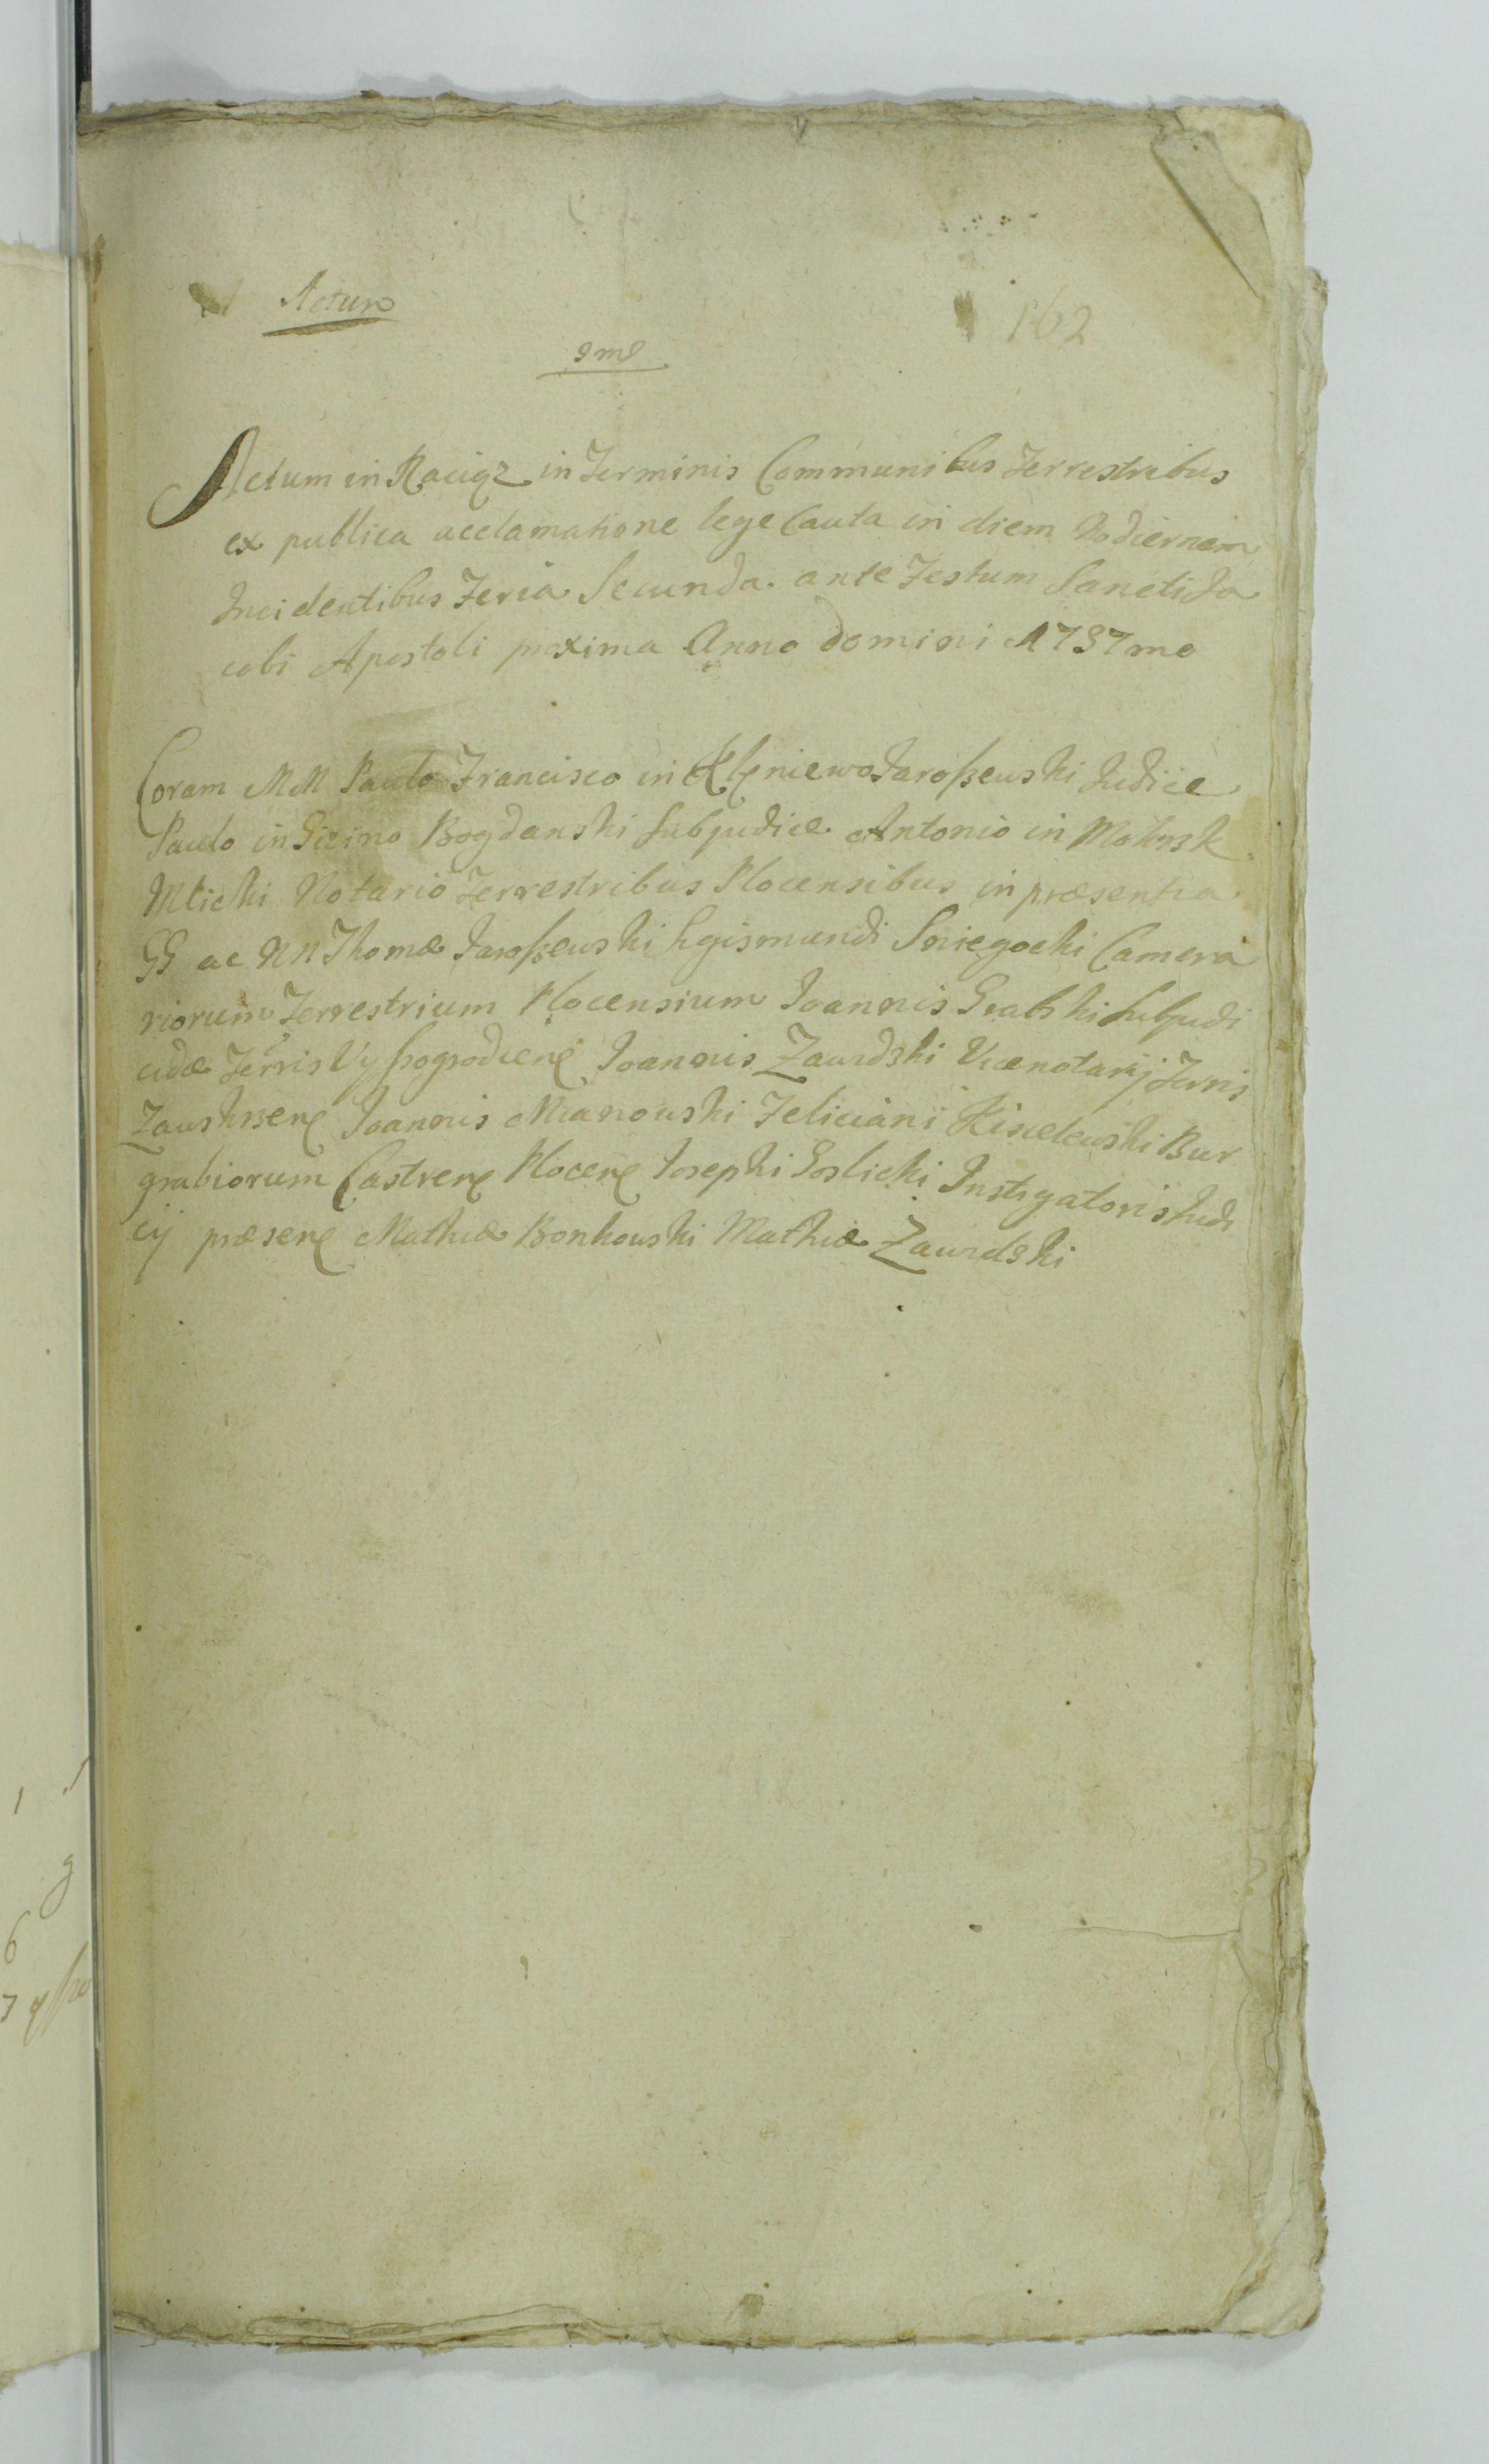 Actum
162
Actum in Raciąz in Terminis Communibus Terrestribus
ex publica acclamatione lege Cauta in diem Hodiernem
Incidentibus Feria Secunda ante Festum Sancti Ja
cobi Apostoli proxima Anno Domini 1737mo
Coram MM Paulo Francisco in Jaroszewski Judice
Paulo in Gizino Bogdanski Subjudice Antonio in Mokrsk
Mlicki Notario Terrestribus Plocensibus in præsentia
GG ac NN Thomæ Jaroszewski Sigismundi Sniegocki Camera
riorum Terrestrium Plocensium Joannis Grabski Subjudi
cidæ Terris Joannis Zawidzki Vicenotarij Terris
Zawskrzen Joannis Mianowski Feliciani Kisielewski Bur
grabiorum Castren Plocen Josephi Goslicki Instigatoris Judi
cij præsen Mathiæ Bonkowski Mathiæ Zawidzki